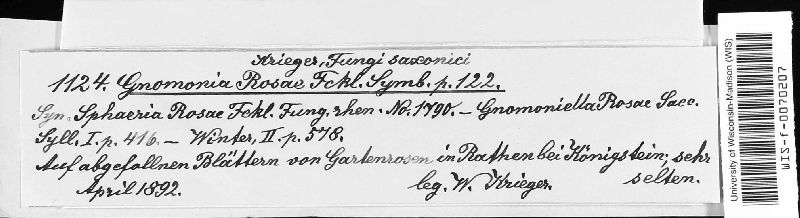 Krieger, Fungi saxonici
1124. Gnomonia Rosae Fckl. Symb. p. 122.
Syn. Sphaeria Rosae Fckl. Fung. rhen. No. 1790. – Gnomoniella Rosae Sacc.
Syll. I. p. 416. – Winter, II. p. 578.
Auf abgefallnen Blättern von Gartenrosen in Rathen bei Königstein; sehr
selten.
April 1892. leg. W. Krieger.
University of Wisconsin-Madison (WIS)
WIS-f-0070207